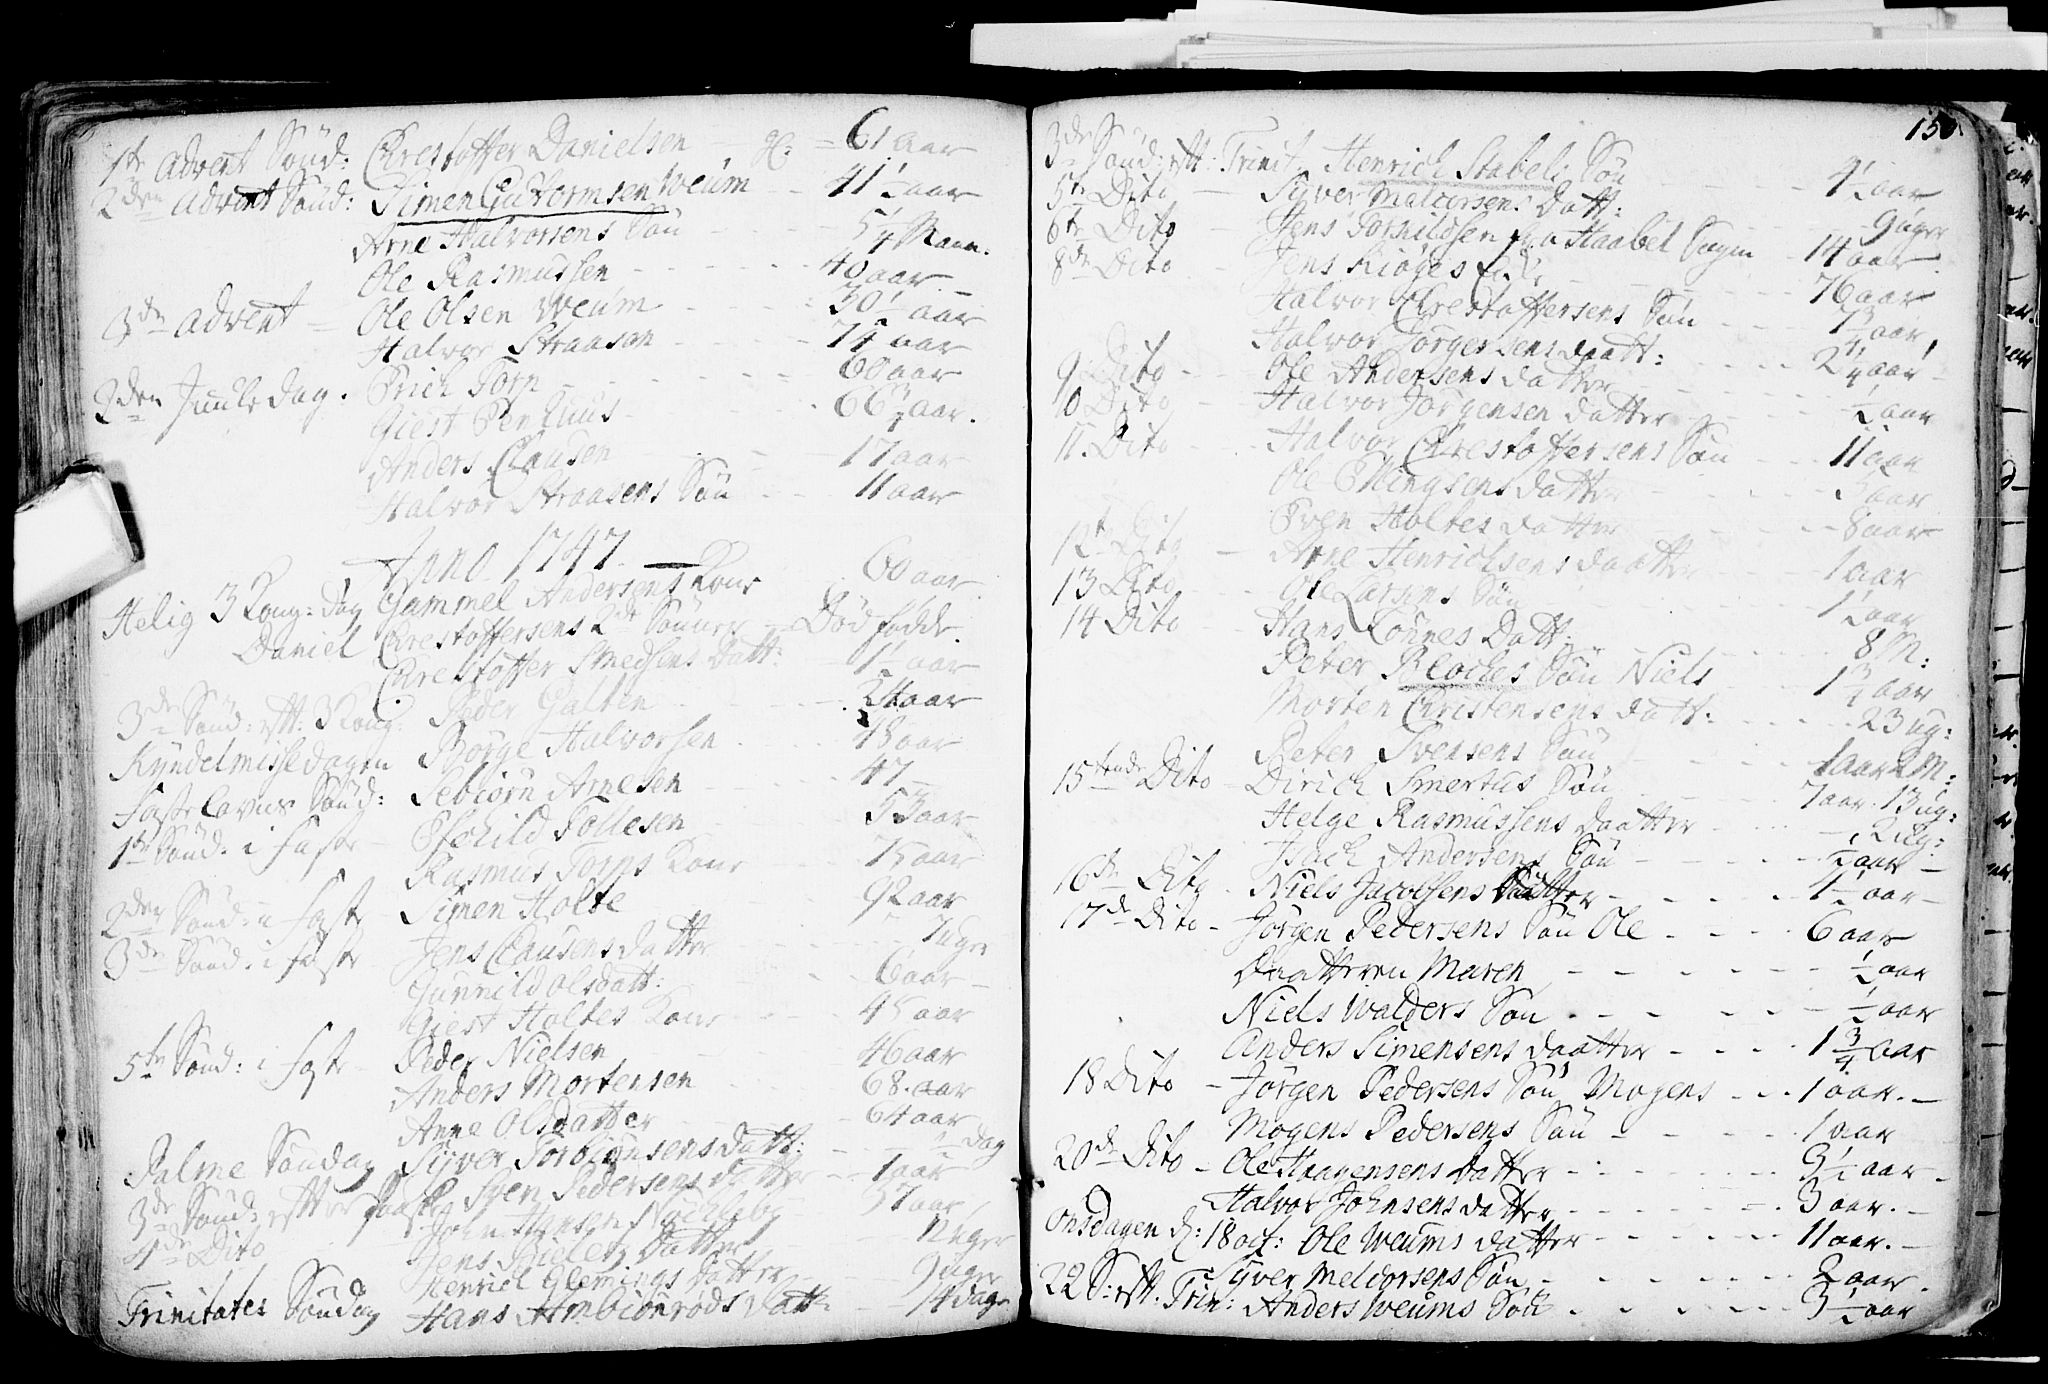 1te Advent Sønd: Christoffer Danielsen - 61 aar
2den Advent Sønd: Simen Guttormsen Weum - 41½ aar
Arne Halvorsens Søn - 5¼ Maan.
Ole Rasmussen - 40 aar
3de Advent - Ole Olsen Weum - 50½ aar
Halvor Straasen - 74 aar
2den Juule dag. Erich Torp - 60 aar
Giest Penluus - 66½ aar.
Anders Clausen - 17 aar
Halvor Straasens Søn - 11 aar
Anno 1747.
Helig 3 Kong: dag Gammel Andersens Kone 60 aar
Daniel Christoffersens 2de Sønner - Død fødde.
Christoffer Smedsens Datt: - 1½ aar
3de Sønd: eft: 3 Kong: Peder Galten - 24 aar
Kyndelmisse dagen Børge Halvorsen - 18 aar
Fastelavns Sønd: Sebiørn Arnesen - 47
1te Sønd: i faste - Eschild Tollesen - 53 aar
Rasmus Torps Kone - 75 aar
2den Sønd: i faste Simen Holte - 92 aar
3de Sønd: i faste Jens Clausens datter - 7 uger
Gunnild Olsdatt: - 6 aar
Giest Holtes Kone - 45 aar
5te Sønd: i faste - Peder Nielsen - 46 aar
Anders Mortensen - 68. aar
Anne Olsdatter - 64 aar
Palme Søndag Syver Torbiønsens datt: - ½ Dag
3de Sønd: efter Paaske Sven Pedersens datter - 1 aar
4de Dito John Hansen Nochleby - 57 aar
Jens datter - 12 uger
Henrich Glemings datter - 9 uger
Trinitates Søndag Hans Ambiørnrøds datt: 14 dage
150.
3de Sønd: eft: Trinit. Henrich Stabels Søn - 4½ aar
5te Dito - Syver Malvorsens Datt: - 9 uger
6te Dito - Jens Torkildsen fra Haabel Sogn - 14 aar
8de Dito - Jens Kiøges - 76 aar
Halvor Christoffersens Søn - 1¾ aar
Halvor Jørgensens daatt: - 2¼ aar
9 Dito - Ole Andersens datter - ½ aar
10 Dito - Halvor Jørgensen datter
11. Dito - Halvor Christoffersens Søn - 11 aar
Ole Ellingsens datter - 5 aar
Even Holtes datter - 8 aar
12te Dito - Arne Henrichsens daatter - 1 aar
13 Dito - Ole Larsens Søn - 1½ aar
14 Dito - Hans Lønnes Datt: - 8 M:
Peter Bloches Søn Niels - 1¾ aar
Morten Christensens datt: - 23 ug:
Peter Svensens Søn - 1 aar 2 M:
15tende Dito - Dirich Smertus Søn - 7 aar 13 ug:
Helge Rasmussens daatter - 2 ug:
Isach Andersens Søn - ½ aar
16de Dito - Niels Jacobsens datter - 1½ aar
17de Dito - Jørgen Pedersens Søn Ole - 6 aar
Daatteren Maren - ½ aar
Niels Walders Søn - ½ aar
Anders Simensens daatter - 1¾ aar
18 Dito - Jørgen Pedersens Søn Mogens - 1 aar.
Mogens Pedersens Søn - 1 aar
20de Dito - Ole Haagensens datter - 3½ aar
Halvor Johnsens datter - 3 aar.
Onsdagen d: 18 oct: Ole Weums datter - 11 aar.
Syver Meldorsens Søn - 2 aar
22 S: eft: Trin: Anders Weums Søn - 3½ aar